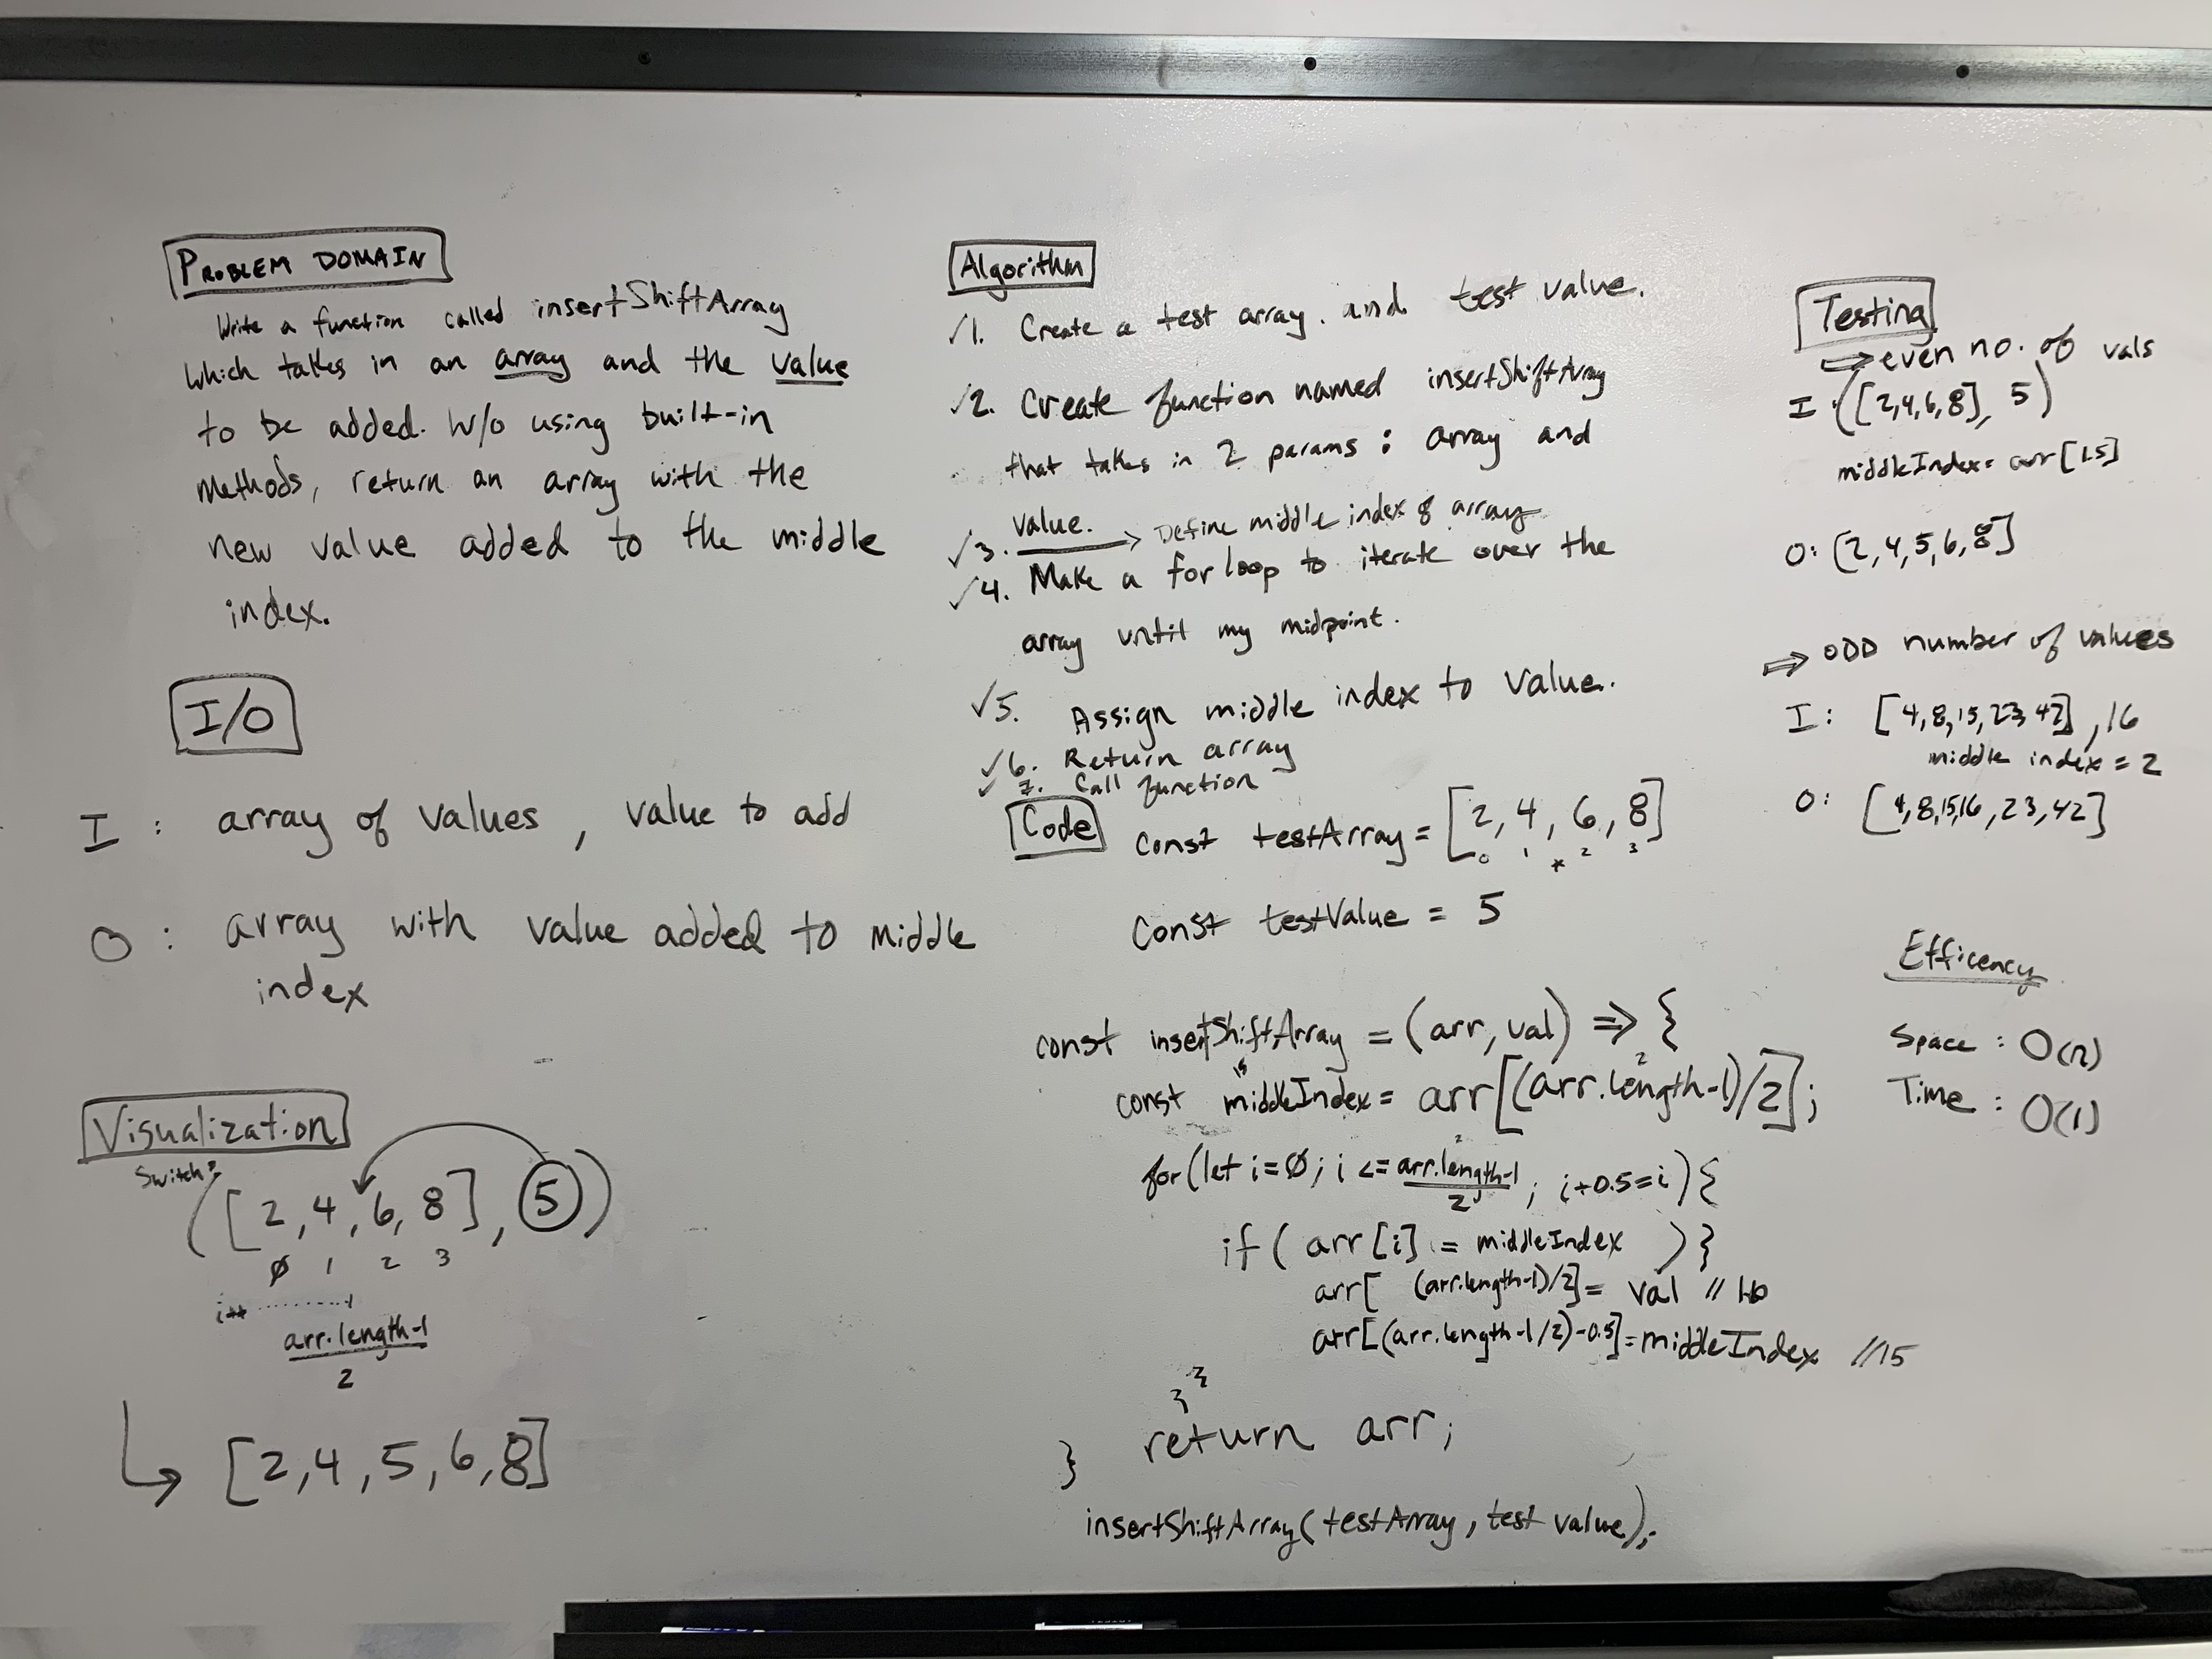 PROBLEM DOMAIN
Write a function called insertShiftArray
which takes in an array and the value
to be added. W/o using built-in
methods, return an array with the
new value added to the middle
index.
I/O
I : array of values , value to add
O : array with value added to middle
index
Visualization
Switch?
([2,4,6,8], 5)
Ø 1 2 3
i++ ........1
arr.length-1
2
[2,4,5,6,8]
Algorithm
✓1. Create a test array. and test value.
✓2. Create function named insertShiftArray
that takes in 2 params : array and
value.
✓3. → Define middle index of array
✓4. Make a for loop to iterate over the
array until my midpoint.
✓5. Assign middle index to value.
✓6. Return array
✓7. Call function
Code
const testArray = [2, 4, 6, 8]
0 1 * 2 3
const testValue = 5
const insertShiftArray = (arr, val) => {
15 2
const middleIndex = arr[(arr.length-1)/2];
2
for(let i=Ø; i <= arr.length-1
2 ; i+0.5=i){
if( arr[i] = middleIndex ){
arr[ (arr.length-1)/2] = val // 16
arr[(arr.length-1/2)-0.5]=middleIndex //15
} }
return arr;
}
insertShiftArray(testArray, test value);
Testing
⇒ even no. of vals
I : ([2,4,6,8], 5)
middleIndex= arr[1.5]
O: [2,4,5,6,8]
⇒ ODD number of values
I : [4,8,15,23,42] ,16
middle index = 2
O: [4,8,15,16,23,42]
Efficency
Space : O(n)
Time : O(1)